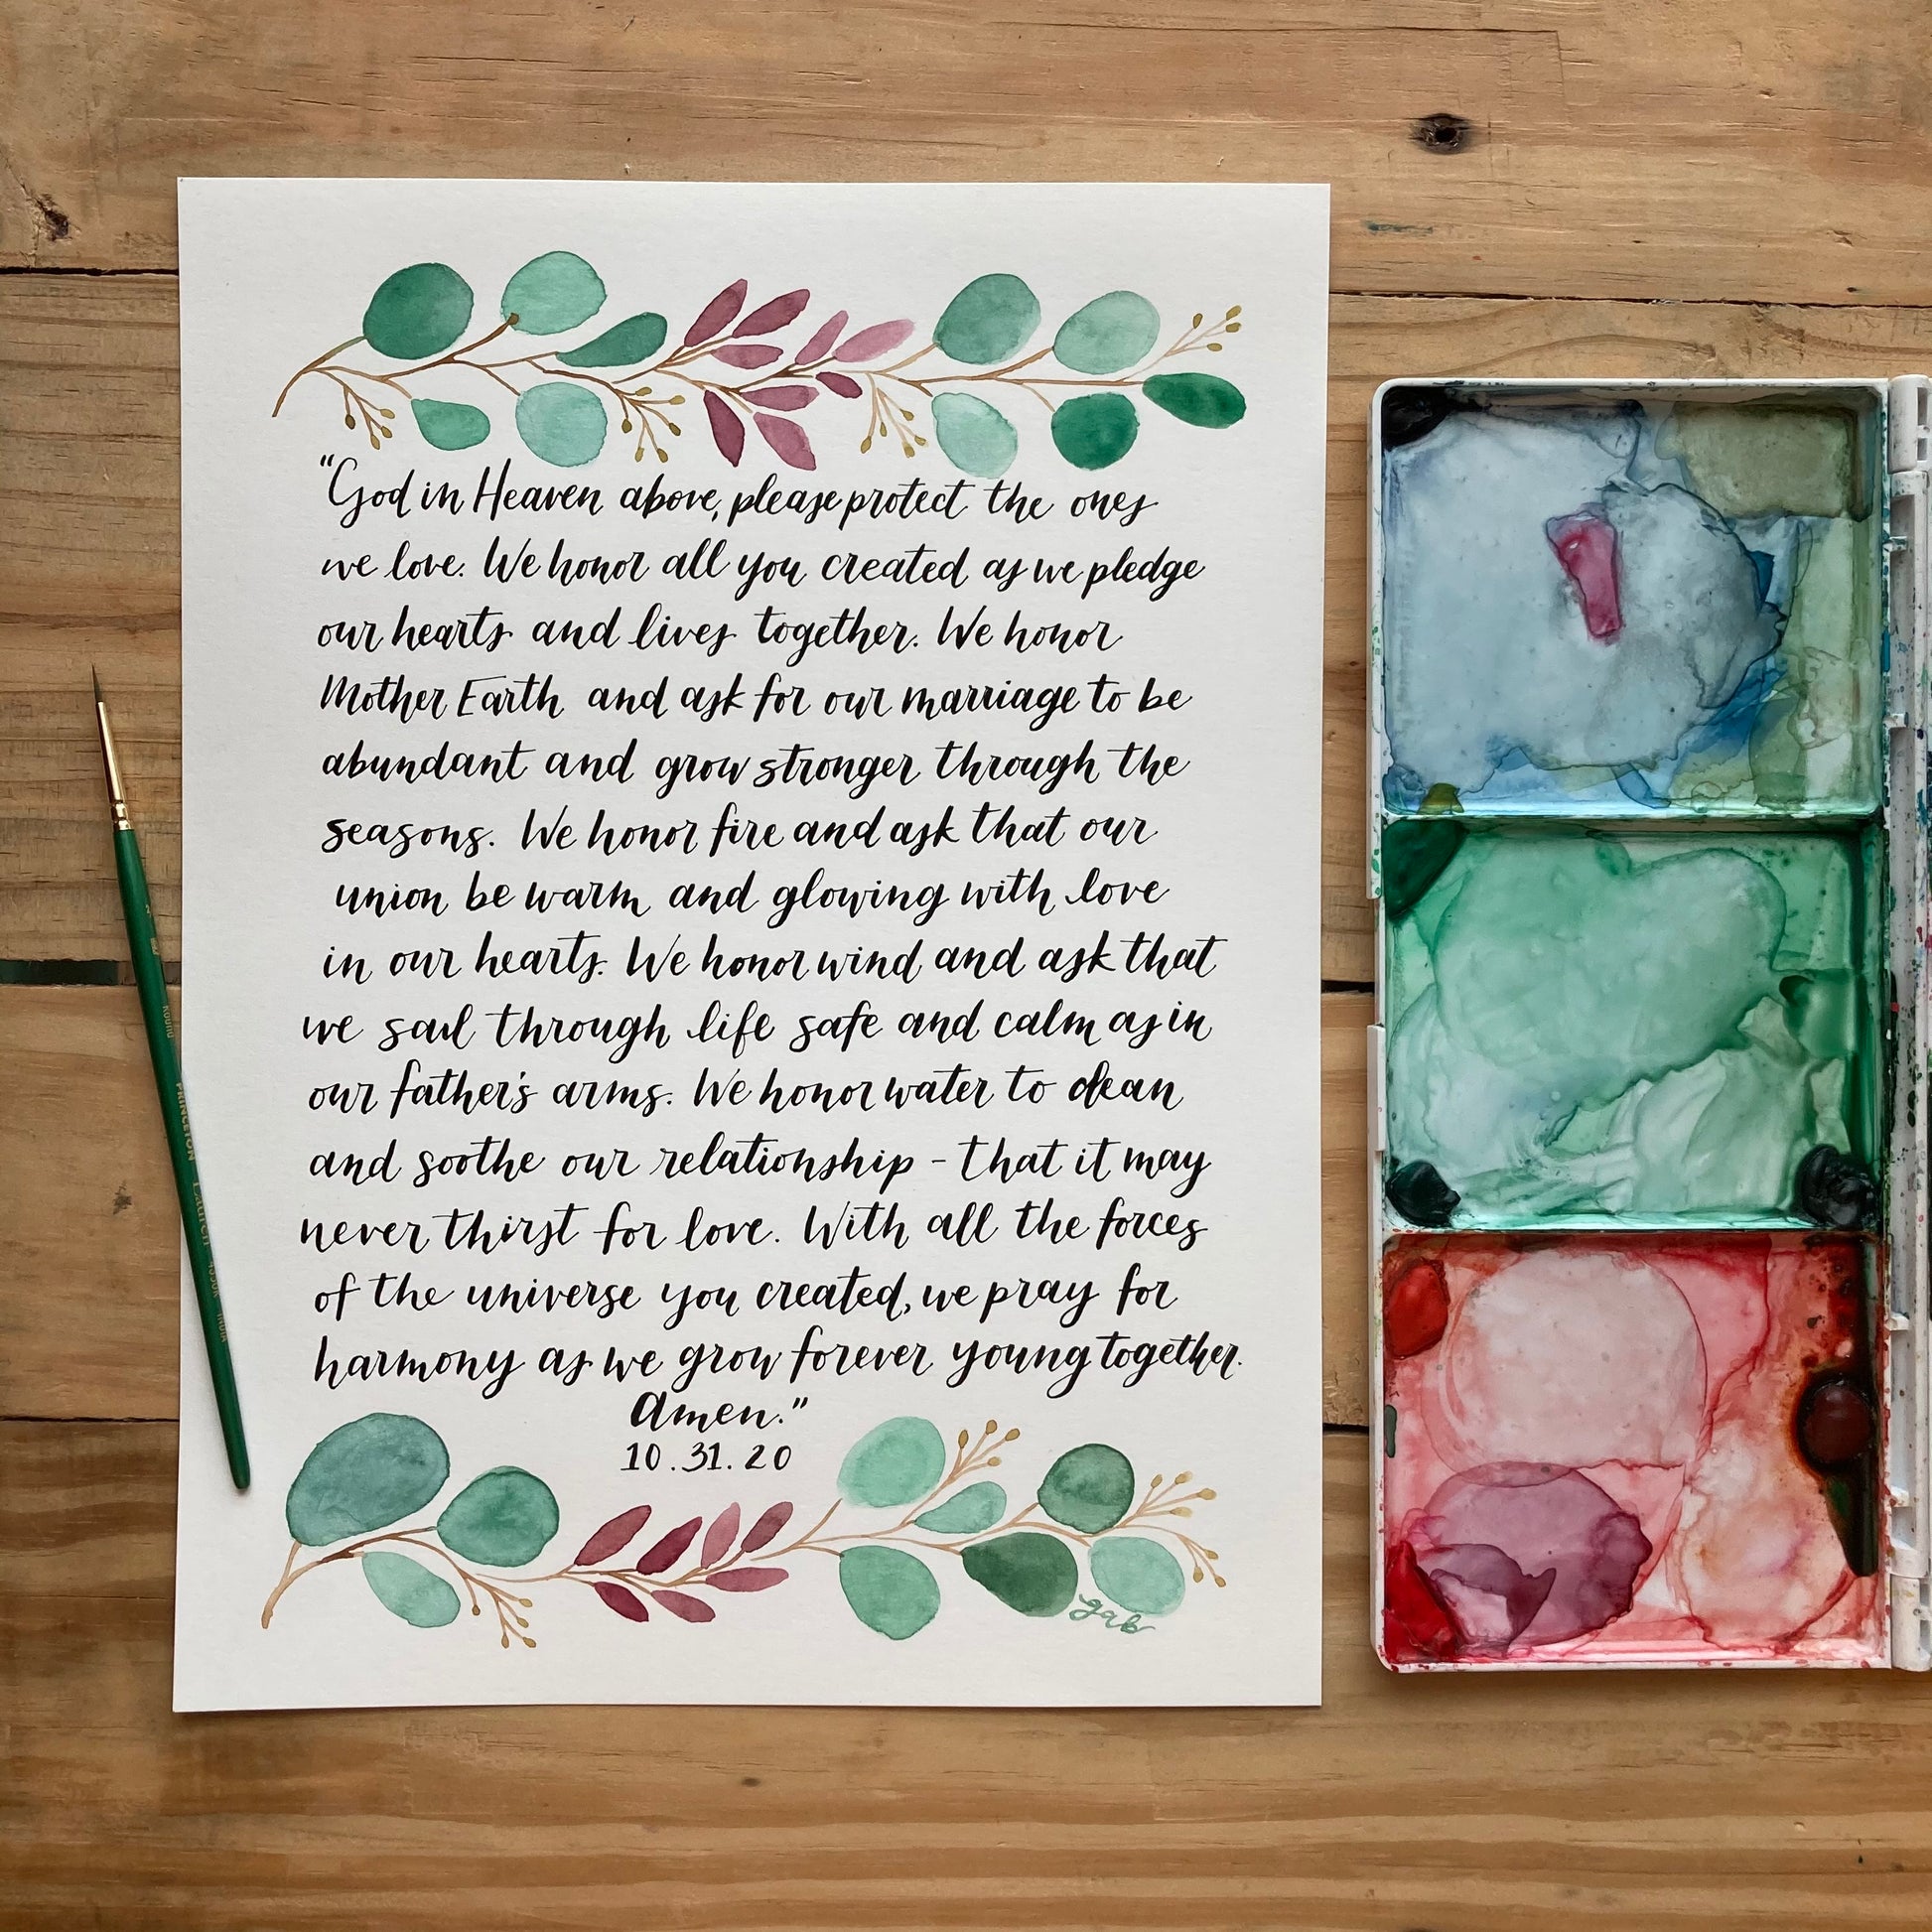 "God in Heaven above, please protect the ones
we love. We honor all you created as we pledge
our hearts and lives together. We honor
Mother Earth and ask for our marriage to be
abundant and grow stronger through the
seasons. We honor fire and ask that our
union be warm and glowing with love
in our hearts. We honor wind and ask that
we sail through life safe and calm as in
our father's arms. We honor water to clean
and soothe our relationship - that it may
never thirst for love. With all the forces
of the universe you created, we pray for
harmony as we grow forever young together.
Amen."
10.31.20
gab
ROUND PRINCETON